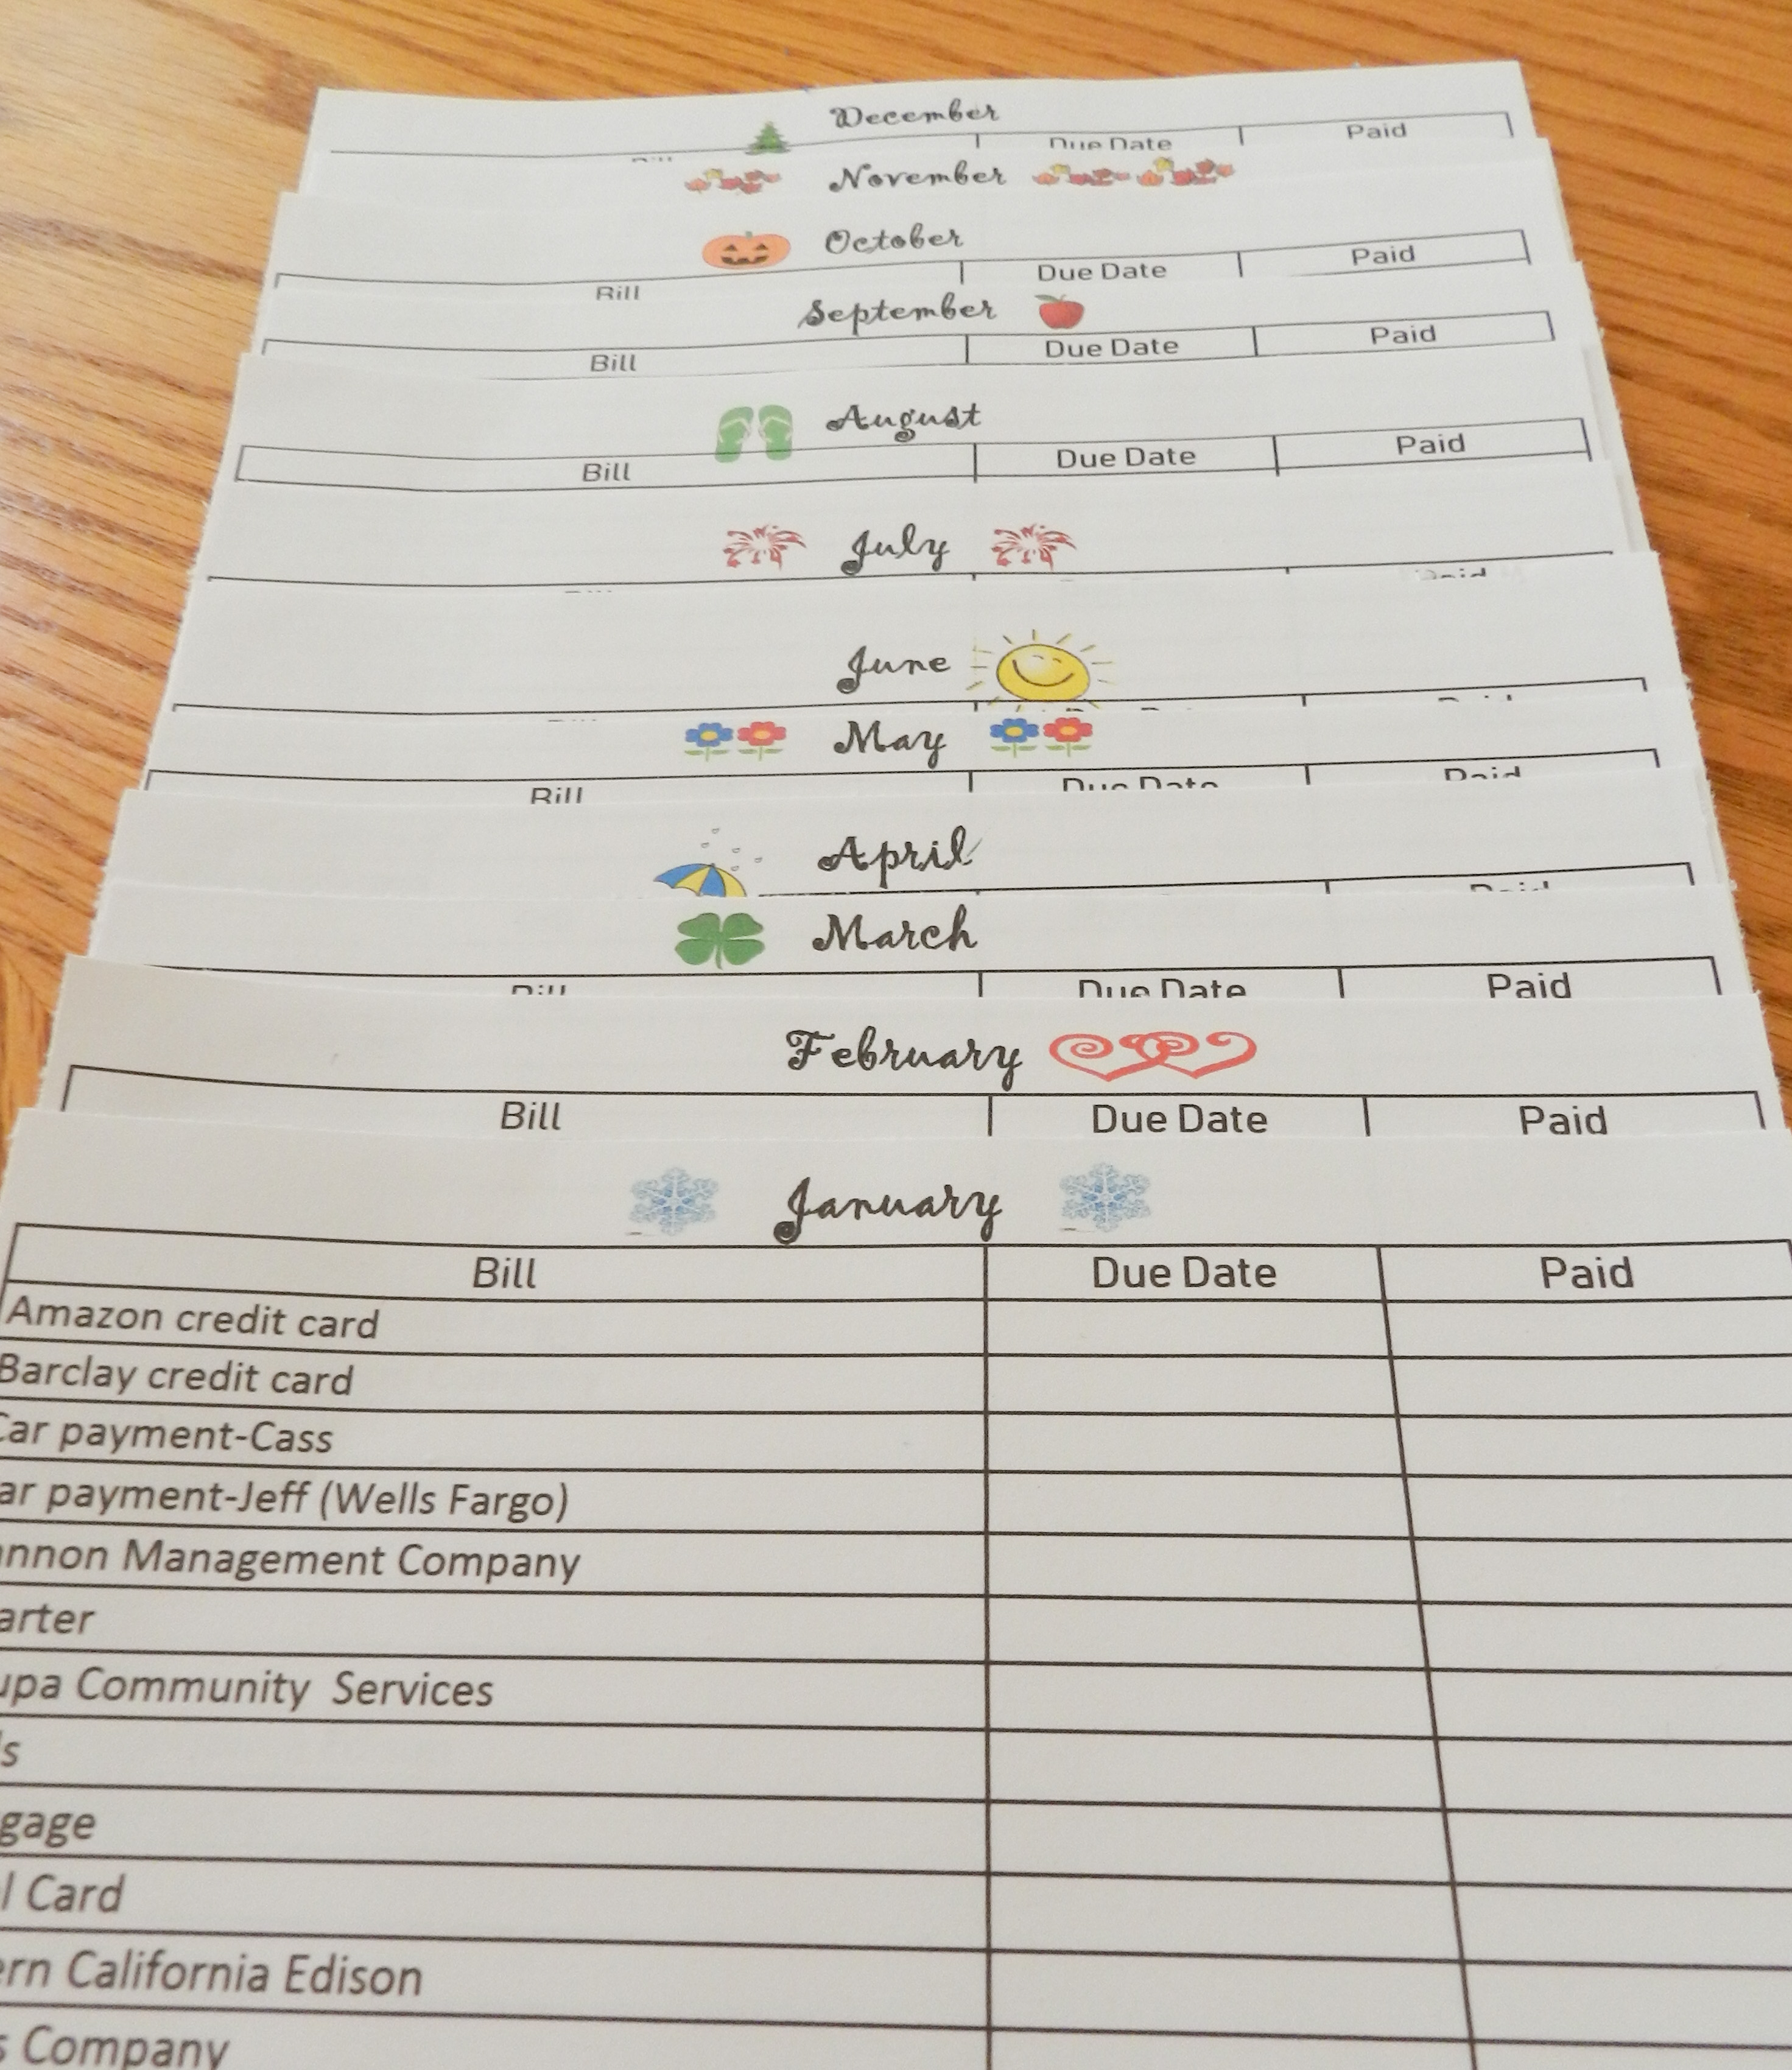 December
Due Date Paid
November
October
Bill Due Date Paid
September
Bill Due Date Paid
August
Bill Due Date Paid
July
Paid
June
May
Bill Due Date Paid
April
Paid
March
Bill Due Date Paid
February
Bill Due Date Paid
January
Bill Due Date Paid
Amazon credit card
Barclay credit card
Car payment-Cass
ar payment-Jeff (Wells Fargo)
annon Management Company
arter
upa Community Services
ls
gage
l Card
ern California Edison
s Company